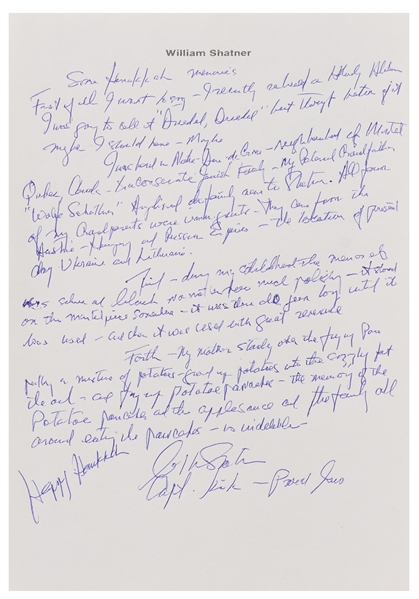 William Shatner
Some Hanukkah memories
First of all I want to say - I recently released a Holiday Album
I was going to call it "Dreidel, Dreidel" but thought better of it
maybe I should have - Maybe
I was born in Notre-Dame de Grace - Neighborhood of Montreal
Quebec Canada - In Conservative Jewish Family - my Paternal Grandfather
"Wolf Schattner" Anglicized our family name to Shatner. All four
of my Grandparents were immigrants - They came from the
Austria - Hungary and Russian Empires - the location of present
day Ukraine and Lithuania.
Third - during my childhood the menorah
was silver and black no matter how much polishing - it stood
on the mantelpiece - it was there all year long until it
was used - and then it was used with great reverence
Fourth - My mother standing over the frying Pan
a mixture of potatoes - potatoes into the fat
the oil - and frying up potatoe pancakes - the memory of the
Potatoe pancakes and the applesauce and the family all
around eating the pancakes - is indelible -
Happy Hanukkah
Capt. Kirk - Proud Jew